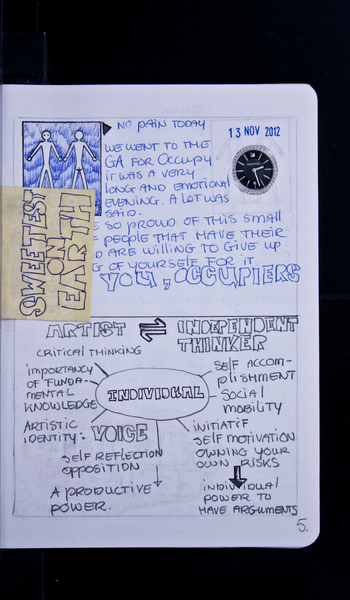 NO PAIN TODAY
13 NOV 2012
WE WENT TO THE
GA FOR OCCUPY
IT WAS A VERY
LONG AND EMOTIONAL
EVENING. A LOT WAS
SAID.
SO PROUD OF THIS SMALL
PEOPLE THAT HAVE THEIR
ARE WILLING TO GIVE UP
OF YOURSELF FOR IT
YOU, OCCUPIERS
SWEETEST
ON
EARTH
ARTIST ⇌ INDEPENDENT
THINKER
CRITICAL THINKING
IMPORTANCY
OF FUNDA-
MENTAL
KNOWLEDGE
ARTISTIC
IDENTITY: VOICE
SELF REFLECTION
OPPOSITION
A PRODUCTIVE
POWER.
INDIVIDUAL
SELF ACCOM-
PLISHMENT
SOCIAL
MOBILITY
INITIATIF
SELF MOTIVATION
OWNING YOUR
OWN RISKS
INDIVIDUAL
POWER TO
HAVE ARGUMENTS
5.